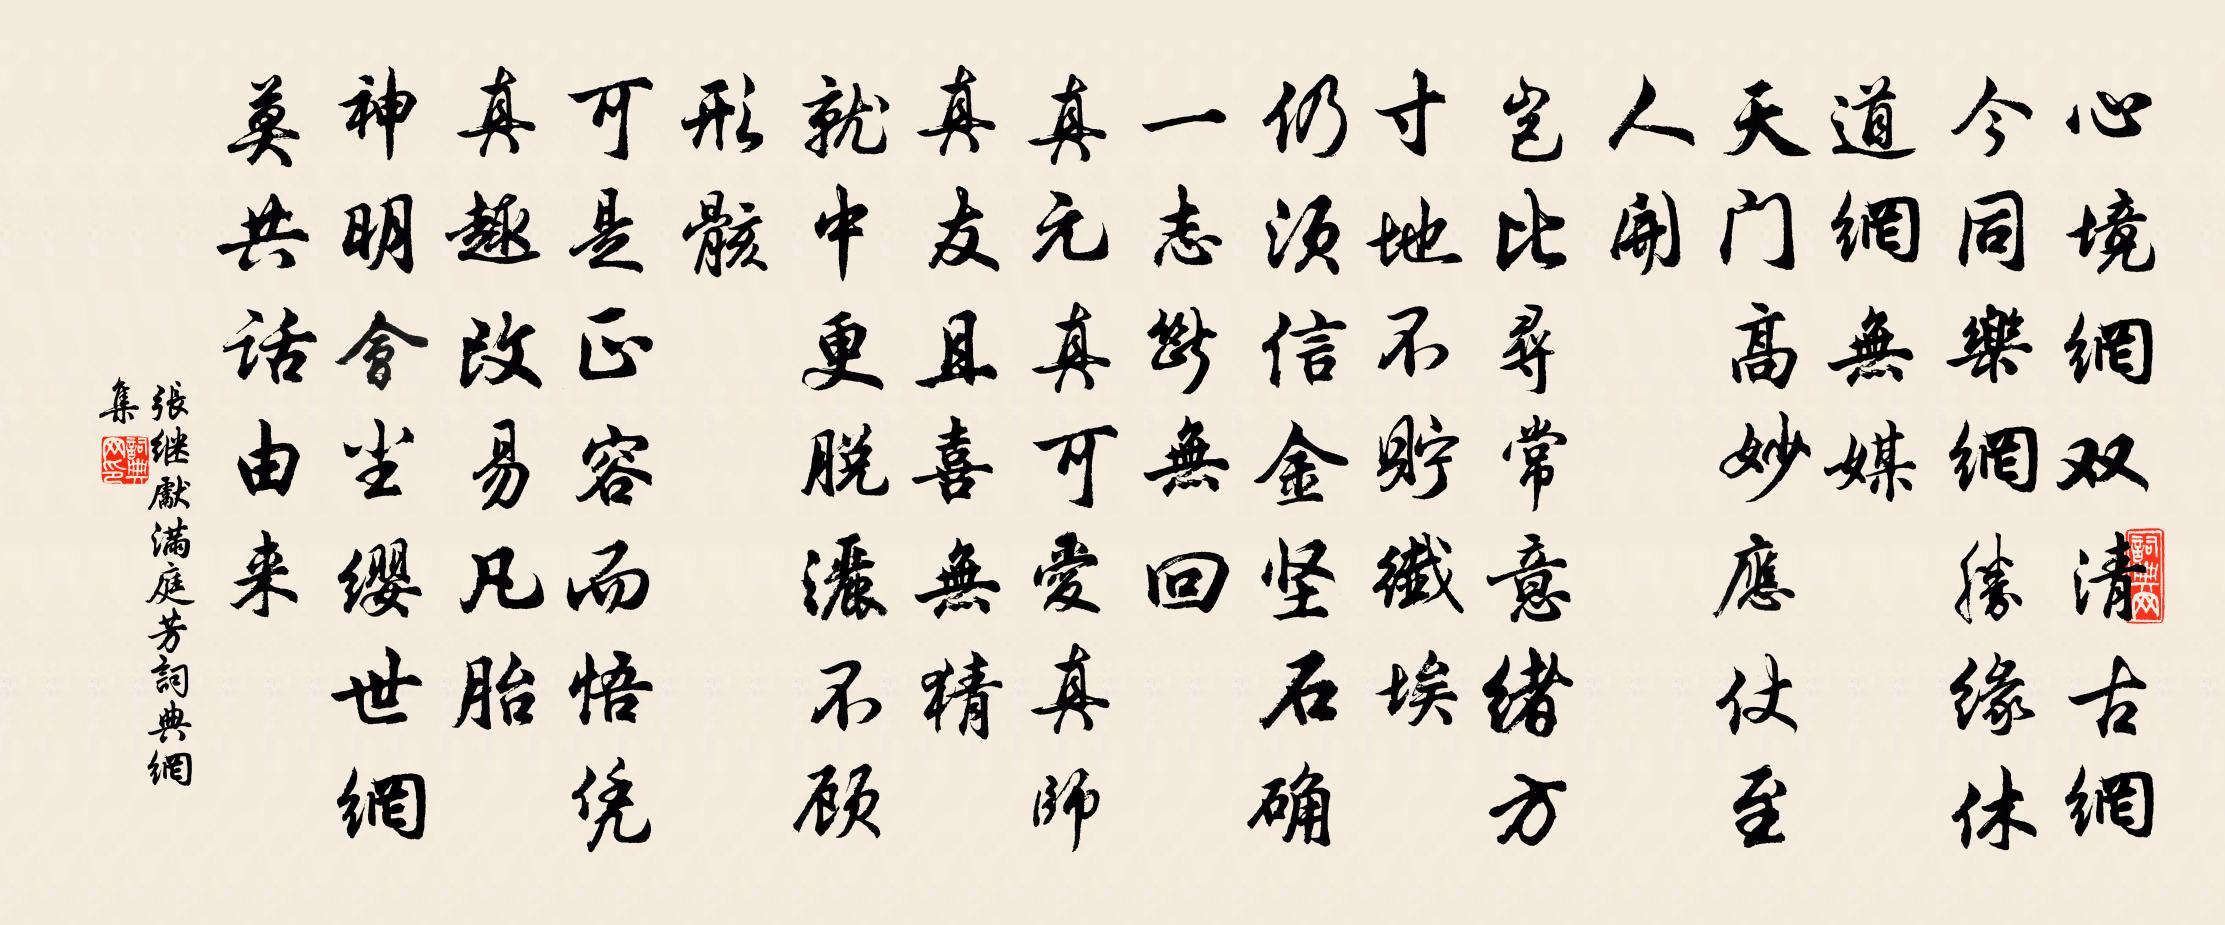 心境網双清古網
今同樂網勝緣休
道網無媒
天门高妙應仗至
人開
岂比尋常意緒方
寸地不貯纖埃
仍须信金坚石确
一志斷無回
真元真可愛真師
真友且喜無猜
就中更脱灑不顾
形骸
可是正容而悟凭
真趣改易凡胎
神明會尘缨世網
莫共话由来
張继獻满庭芳詞典網
集
詞典网
詞典网印